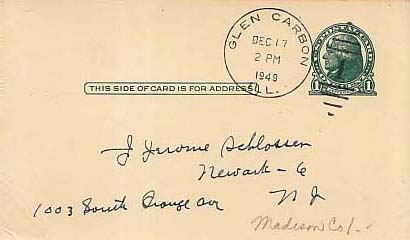 GLEN CARBON
DEC 17
2 PM
1949
ILL.
THIS SIDE OF CARD IS FOR ADDRESS
1 1
J Jerome Schlosser
Newark - 6
1003 South Orange Ave
N J
Madison Co/-